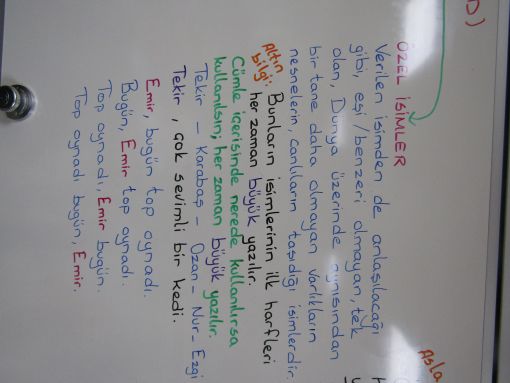 D)
ÖZEL İSİMLER
Verilen isimden de anlaşılacağı
gibi, eşi/benzeri olmayan, tek
olan, Dünya üzerinde aynısından
bir tane daha olmayan varlıkların
nesnelerin, canlıların taşıdığı isimlerdir.
Altın bilgi: Bunların isimlerinin ilk harfleri
her zaman büyük yazılır.
Cümle içerisinde nerede kullanılırsa
kullanılsın; her zaman büyük yazılır.
Tekir - Karabaş - Ozan - Nur - Ezgi
Tekir, çok sevimli bir kedi.
Emir, bugün top oynadı.
Bugün, Emir top oynadı.
Top oynadı, Emir bugün.
Top oynadı bugün, Emir.
Asla